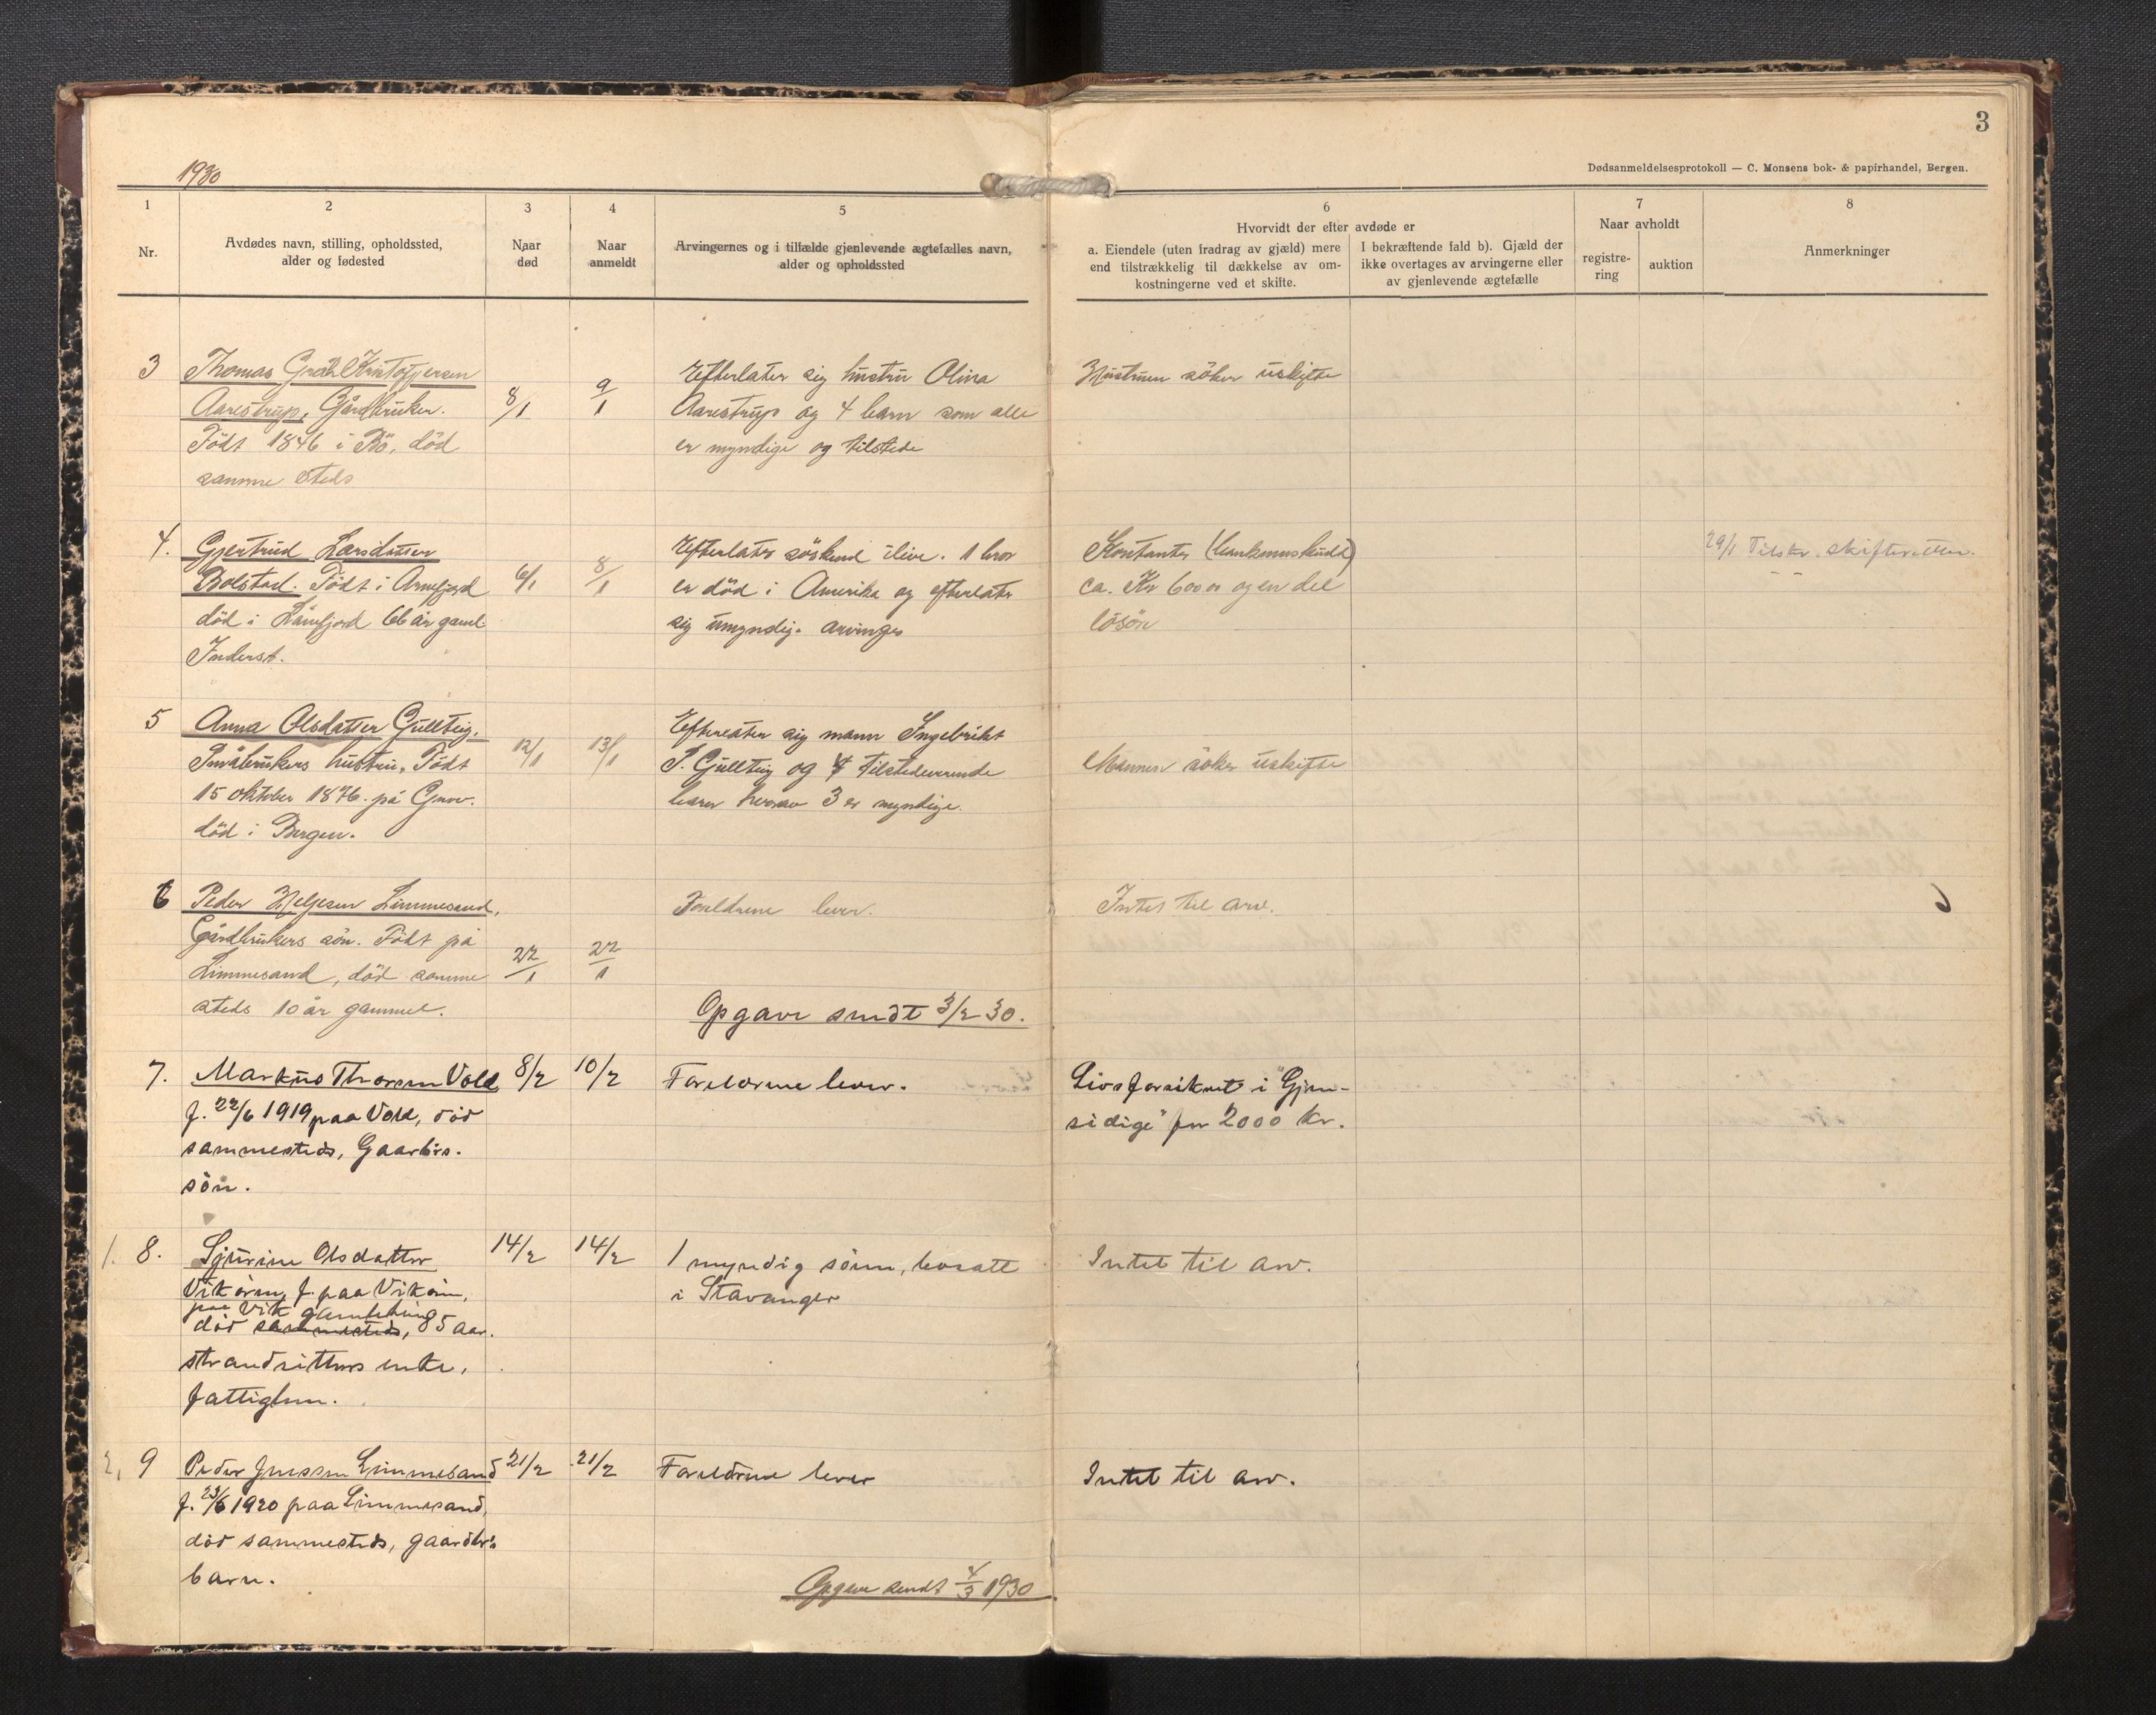 3
Dødsanmeldelsesprotokoll — C. Monsens bok- & papirhandel, Bergen.
1930
1 2 3 4 5 6 7 8
Nr.
Avdødes navn, stilling, opholdssted,
alder og fødested
Naar
død
Naar
anmeldt
Arvingernes og i tilfælde gjenlevende ægtefælles navn,
alder og opholdssted
Hvorvidt der efter avdøde er
a. Eiendele (uten fradrag av gjæld) mere
end tilstrækkelig til dækkelse av om-
kostningerne ved et skifte.
I bekræftende fald b). Gjæld der
ikke overtages av arvingerne eller
av gjenlevende ægtefælle
Naar avholdt
registre-
ring
auktion
Anmerkninger
3
Thomas Kristoffersen
Aarestrup, Gårdbruker.
Født 1846 i Bö, död
samme steds
8/1
9/1
Efterlater sig hustru Olina
Aarestrup og 4 barn som alle
er myndige og tilstede
Hustruen söker uskifte
4.
Gjertrud Larsdatter
Bolstad. Født i Arnefjord
död i Arnefjord 66 år gaml
Inderst.
6/1
8/1
Efterlater söskend ilive. 1 bror
er död i Amerika og efterlater
sig umyndig. arvinger
Kontanter
ca. Kr 600 og en del
lösöre
29/1 Tilskr. skifteretten.
5
Anna Olsdatter Gullteig.
Småbrukers hustru. Født
15 oktober 1876. på
död i Bergen.
12/1
13/1
Efterlater sig mann Ingebrikt
I. Gullteig og 4 tilstedeværende
barn hvorav 3 er myndige.
Mannen söker uskifte
6
Peder Helgesen Limmesand,
Gårdbrukers sön. Født på
Limmesand, död samme
steds 10 år gammel.
22/1
22/1
Foreldrene lever.
Intet til arv.
Opgave sendt 3/2 30.
7.
Markus Thorsen Vold
f. 22/6 1919 paa Vold, död
sammesteds, Gaardbrs.
sön.
8/2
10/2
Foreldrene lever.
Livsforsikret i "Gjen-
sidige" for 2000 kr.
1. 8.
Sjurine Olsdatter
Vikören, f. paa Vikören,
paa Vik gamlehjem
död sammesteds, 85 aar.
strandsitters enke,
fattiglem.
14/2
14/2
1 myndig sönn, bosatt
i Stavanger
Intet til arv.
2, 9
Peder Jenssen Limmesand
f. 23/6 1920 paa Limmesand,
död sammesteds, gaardbrs
barn.
21/2
21/2
Foreldrene lever
Intet til arv.
Opgave sendt 4/3 1930